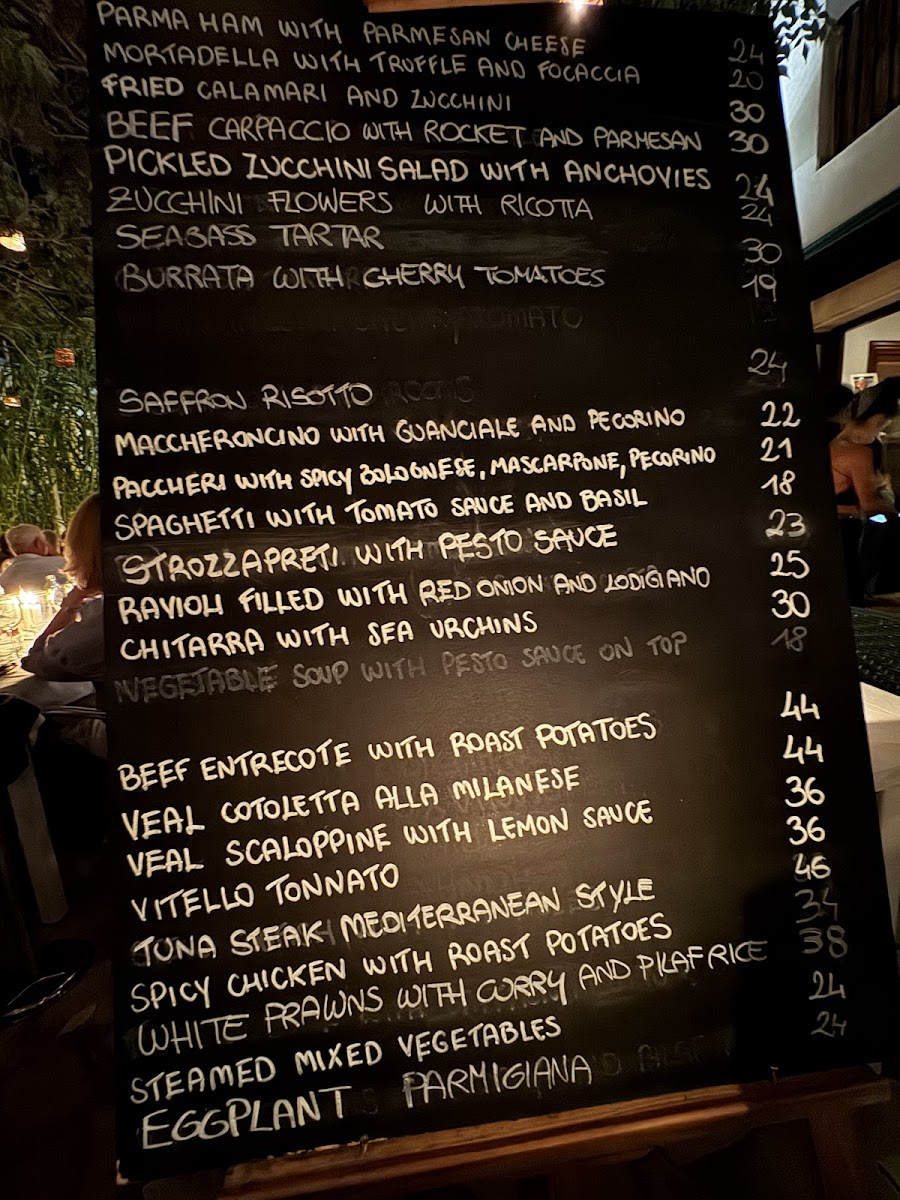 PARMA HAM WITH PARMESAN CHEESE 24
MORTADELLA WITH TRUFFLE AND FOCACCIA 20
FRIED CALAMARI AND ZUCCHINI 30
BEEF CARPACCIO WITH ROCKET AND PARMESAN 30
PICKLED ZUCCHINI SALAD WITH ANCHOVIES 24
ZUCCHINI FLOWERS WITH RICOTTA 24
SEABASS TARTAR 30
BURRATA WITH CHERRY TOMATOES 19
SAFFRON RISOTTO 24
MACCHERONCINO WITH GUANCIALE AND PECORINO 22
PACCHERI WITH SPICY BOLOGNESE, MASCARPONE, PECORINO 21
SPAGHETTI WITH TOMATO SAUCE AND BASIL 18
STROZZAPRETI WITH PESTO SAUCE 23
RAVIOLI FILLED WITH RED ONION AND LODIGIANO 25
CHITARRA WITH SEA URCHINS 30
VEGETABLE SOUP WITH PESTO SAUCE ON TOP 18
BEEF ENTRECOTE WITH ROAST POTATOES 44
VEAL COTOLETTA ALLA MILANESE 44
VEAL SCALOPPINE WITH LEMON SAUCE 36
VITELLO TONNATO 36
TUNA STEAK MEDITERRANEAN STYLE 46
SPICY CHICKEN WITH ROAST POTATOES 34
WHITE PRAWNS WITH CURRY AND PILAF RICE 38
STEAMED MIXED VEGETABLES 24
EGGPLANT PARMIGIANA 24